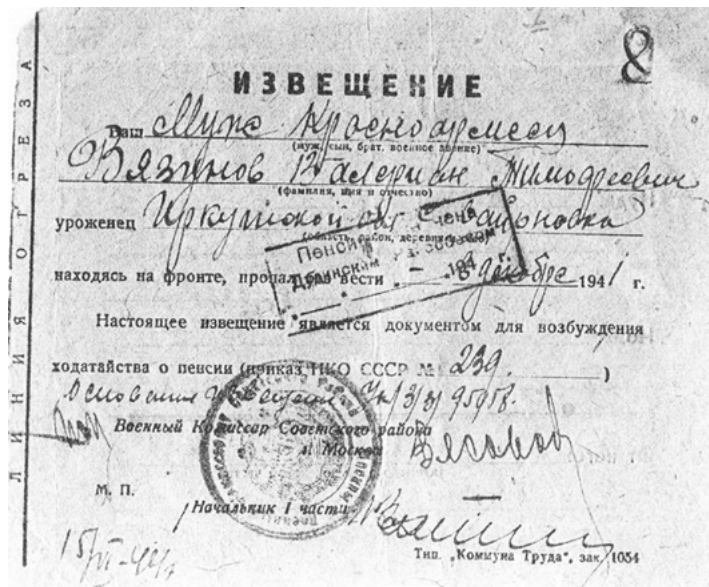 ЛИНИЯ ОТРЕЗА
8
ИЗВЕЩЕНИЕ
Ваш Муж Красноармеец
(муж, сын, брат, военное звание)
Вязинов Валериан Тимофеевич
(фамилия, имя и отчество)
уроженец Иркутской обл.
(область, район, деревня, село)
Пенсия
находясь на фронте, пропал без вести в декабре 1941 г.
Настоящее извещение является документом для возбуждения
ходатайства о пенсии (приказ НКО СССР № 239.)
Военный Комиссар Советского района
г. Москвы
М. П.
Начальник I части
Тип. „Коммуна Труда“, зак. 1034